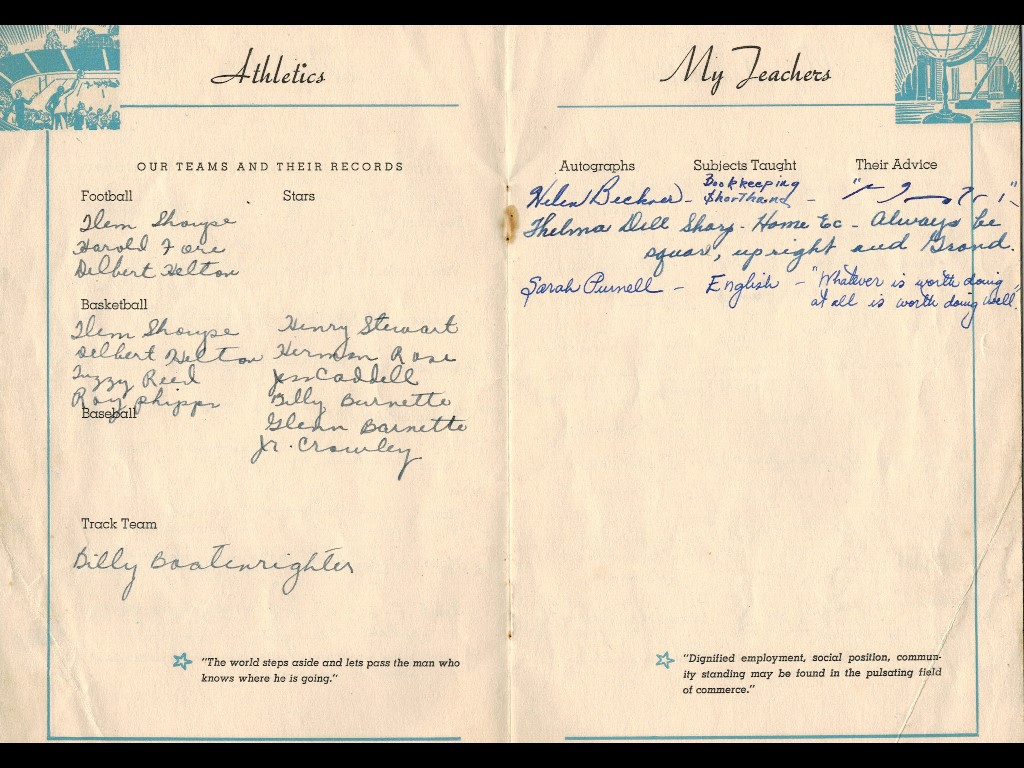 Athletics
OUR TEAMS AND THEIR RECORDS
Football Stars
Clem Shoupe
Harold Fore
Delbert Helton
Basketball
Clem Shoupe Henry Stewart
Delbert Helton Herman Rose
Fuzzy Reed Jess Caddell
Roy Phipps Billy Burnette
Baseball Glenn Barnette
Jr. Crowley
Track Team
Billy Boatenrighter
"The world steps aside and lets pass the man who
knows where he is going."
My Teachers
Autographs Subjects Taught Their Advice
Helen Beckner - Bookkeeping
Shorthand -
Thelma Dell Sharp - Home Ec - Always be
square, upright and Grand.
Sarah Purnell - English - "Whatever is worth doing
at all is worth doing well."
"Dignified employment, social position, commun-
ity standing may be found in the pulsating field
of commerce."